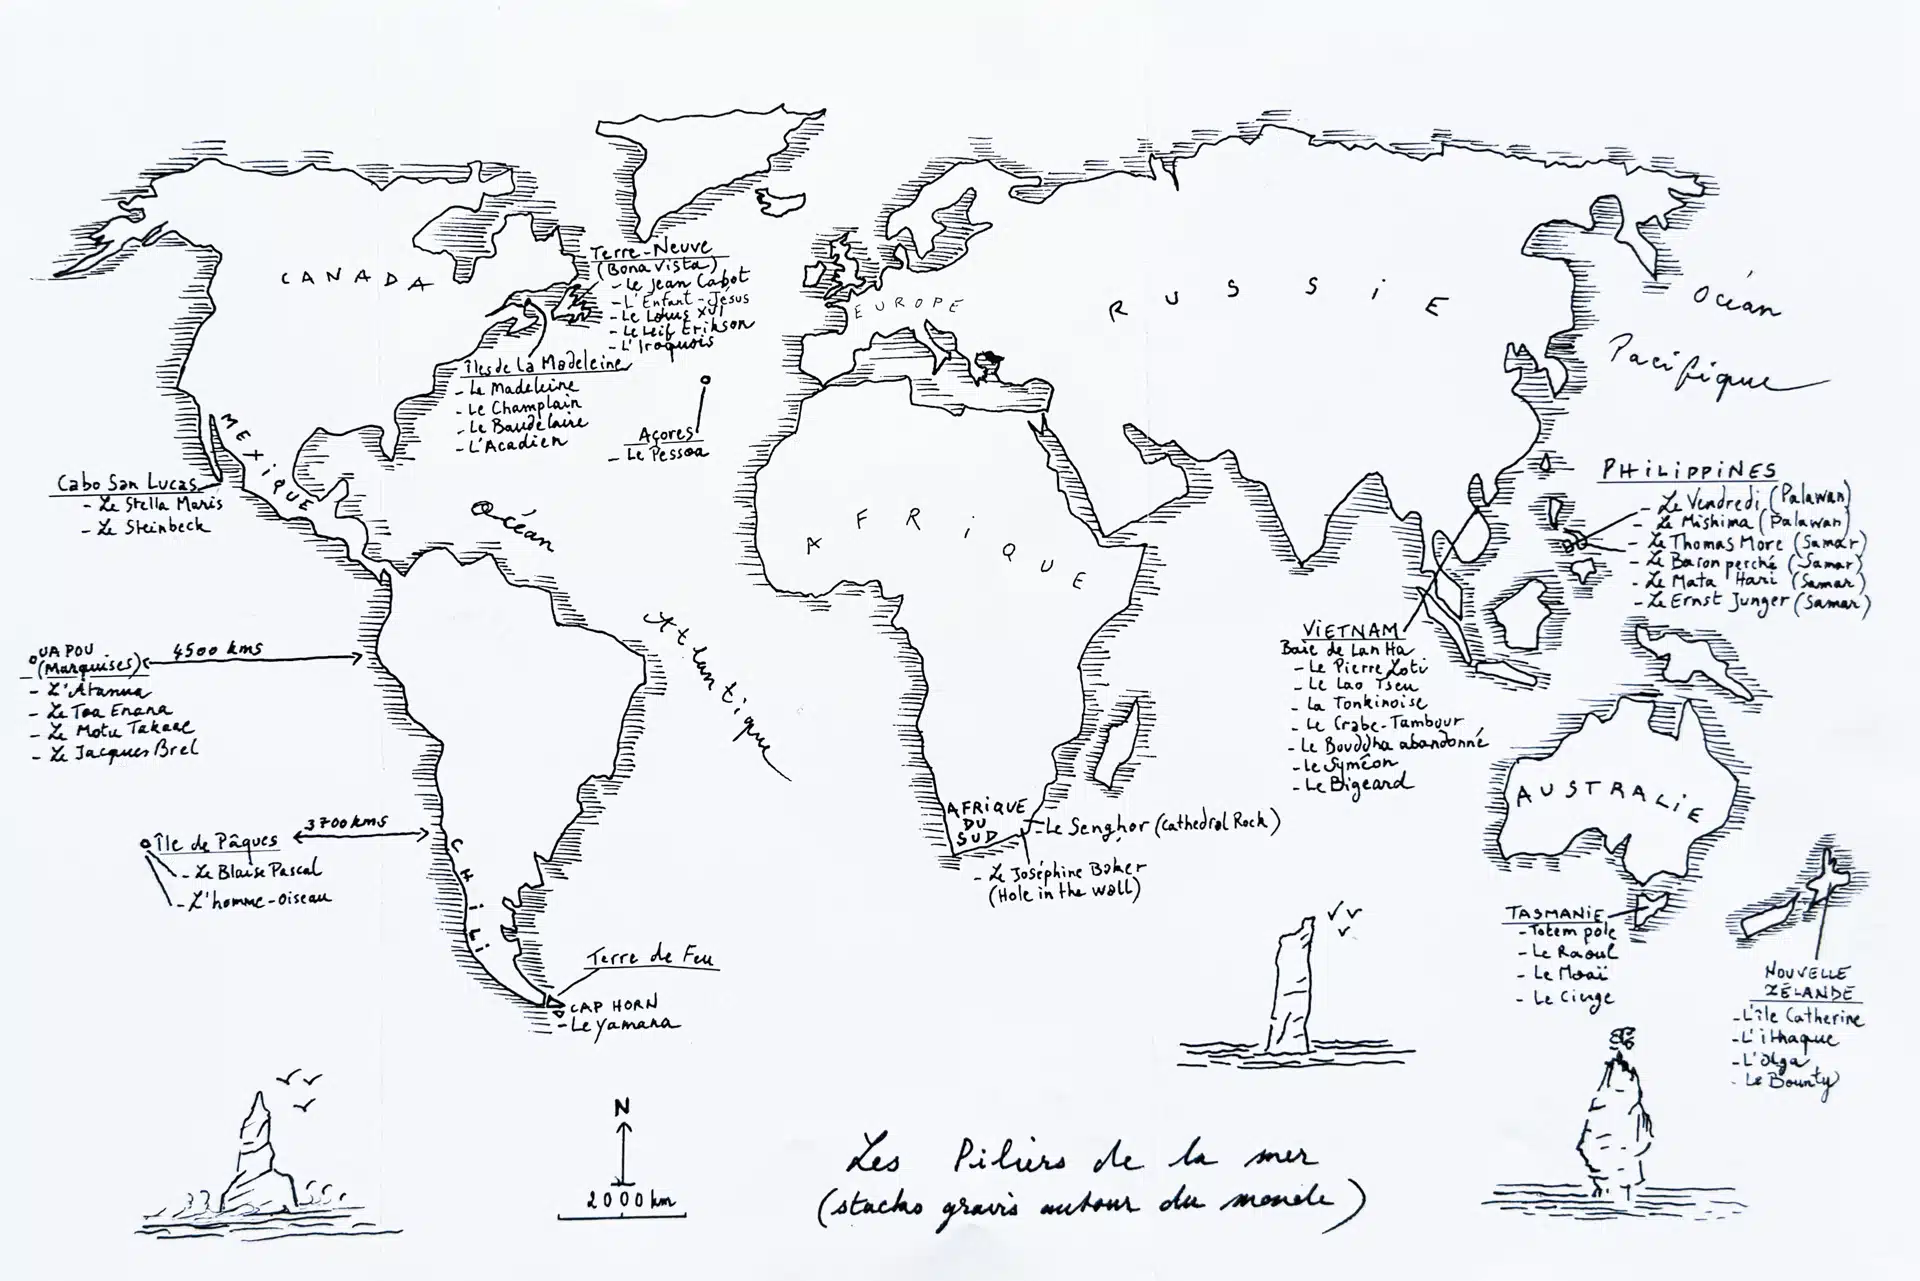 CANADA
Terre-Neuve
(Bona Vista)
- Le Jean Cabot
- L'Enfant-Jésus
- Le Louis XVI
- Le Leif Erikson
- L'Iroquois
EUROPE
RUSSIE
Océan
Pacifique
Îles de La Madeleine
- Le Madeleine
- Le Champlain
- Le Baudelaire
- L'Acadien
Açores
- Le Pessoa
MEXIQUE
Cabo San Lucas
- Le Stella Maris
- Le Steinbeck
Océan
Atlantique
AFRIQUE
PHILIPPINES
- Le Vendredi (Palawan)
- Le Mishima (Palawan)
- Le Thomas More (Samar)
- Le Baron perché (Samar)
- Le Mata Hari (Samar)
- Le Ernst Junger (Samar)
UA POU
(Marquises)
4500 kms
- L'Atanua
- Le Toa Enana
- Le Motu Takaae
- Le Jacques Brel
VIETNAM
Baie de Lan Ha
- Le Pierre Loti
- Le Lao Tseu
- La Tonkinoise
- Le Crabe-Tambour
- Le Bouddha abandonné
- Le Syméon
- Le Bigeard
AUSTRALIE
Île de Pâques
3700 kms
- Le Blaise Pascal
- L'homme-oiseau
CHILI
AFRIQUE
DU
SUD
- Le Senghor (Cathedral Rock)
- Le Joséphine Baker
(Hole in the wall)
TASMANIE
- Totem pole
- Le Raoul
- Le Moaï
- Le Cierge
NOUVELLE
ZÉLANDE
- L'île Catherine
- L'ithaque
- L'Olga
- Le Bounty
Terre de Feu
CAP HORN
- Le Yamana
N
2000 km
Les Piliers de la mer
(stacks gravis autour du monde)